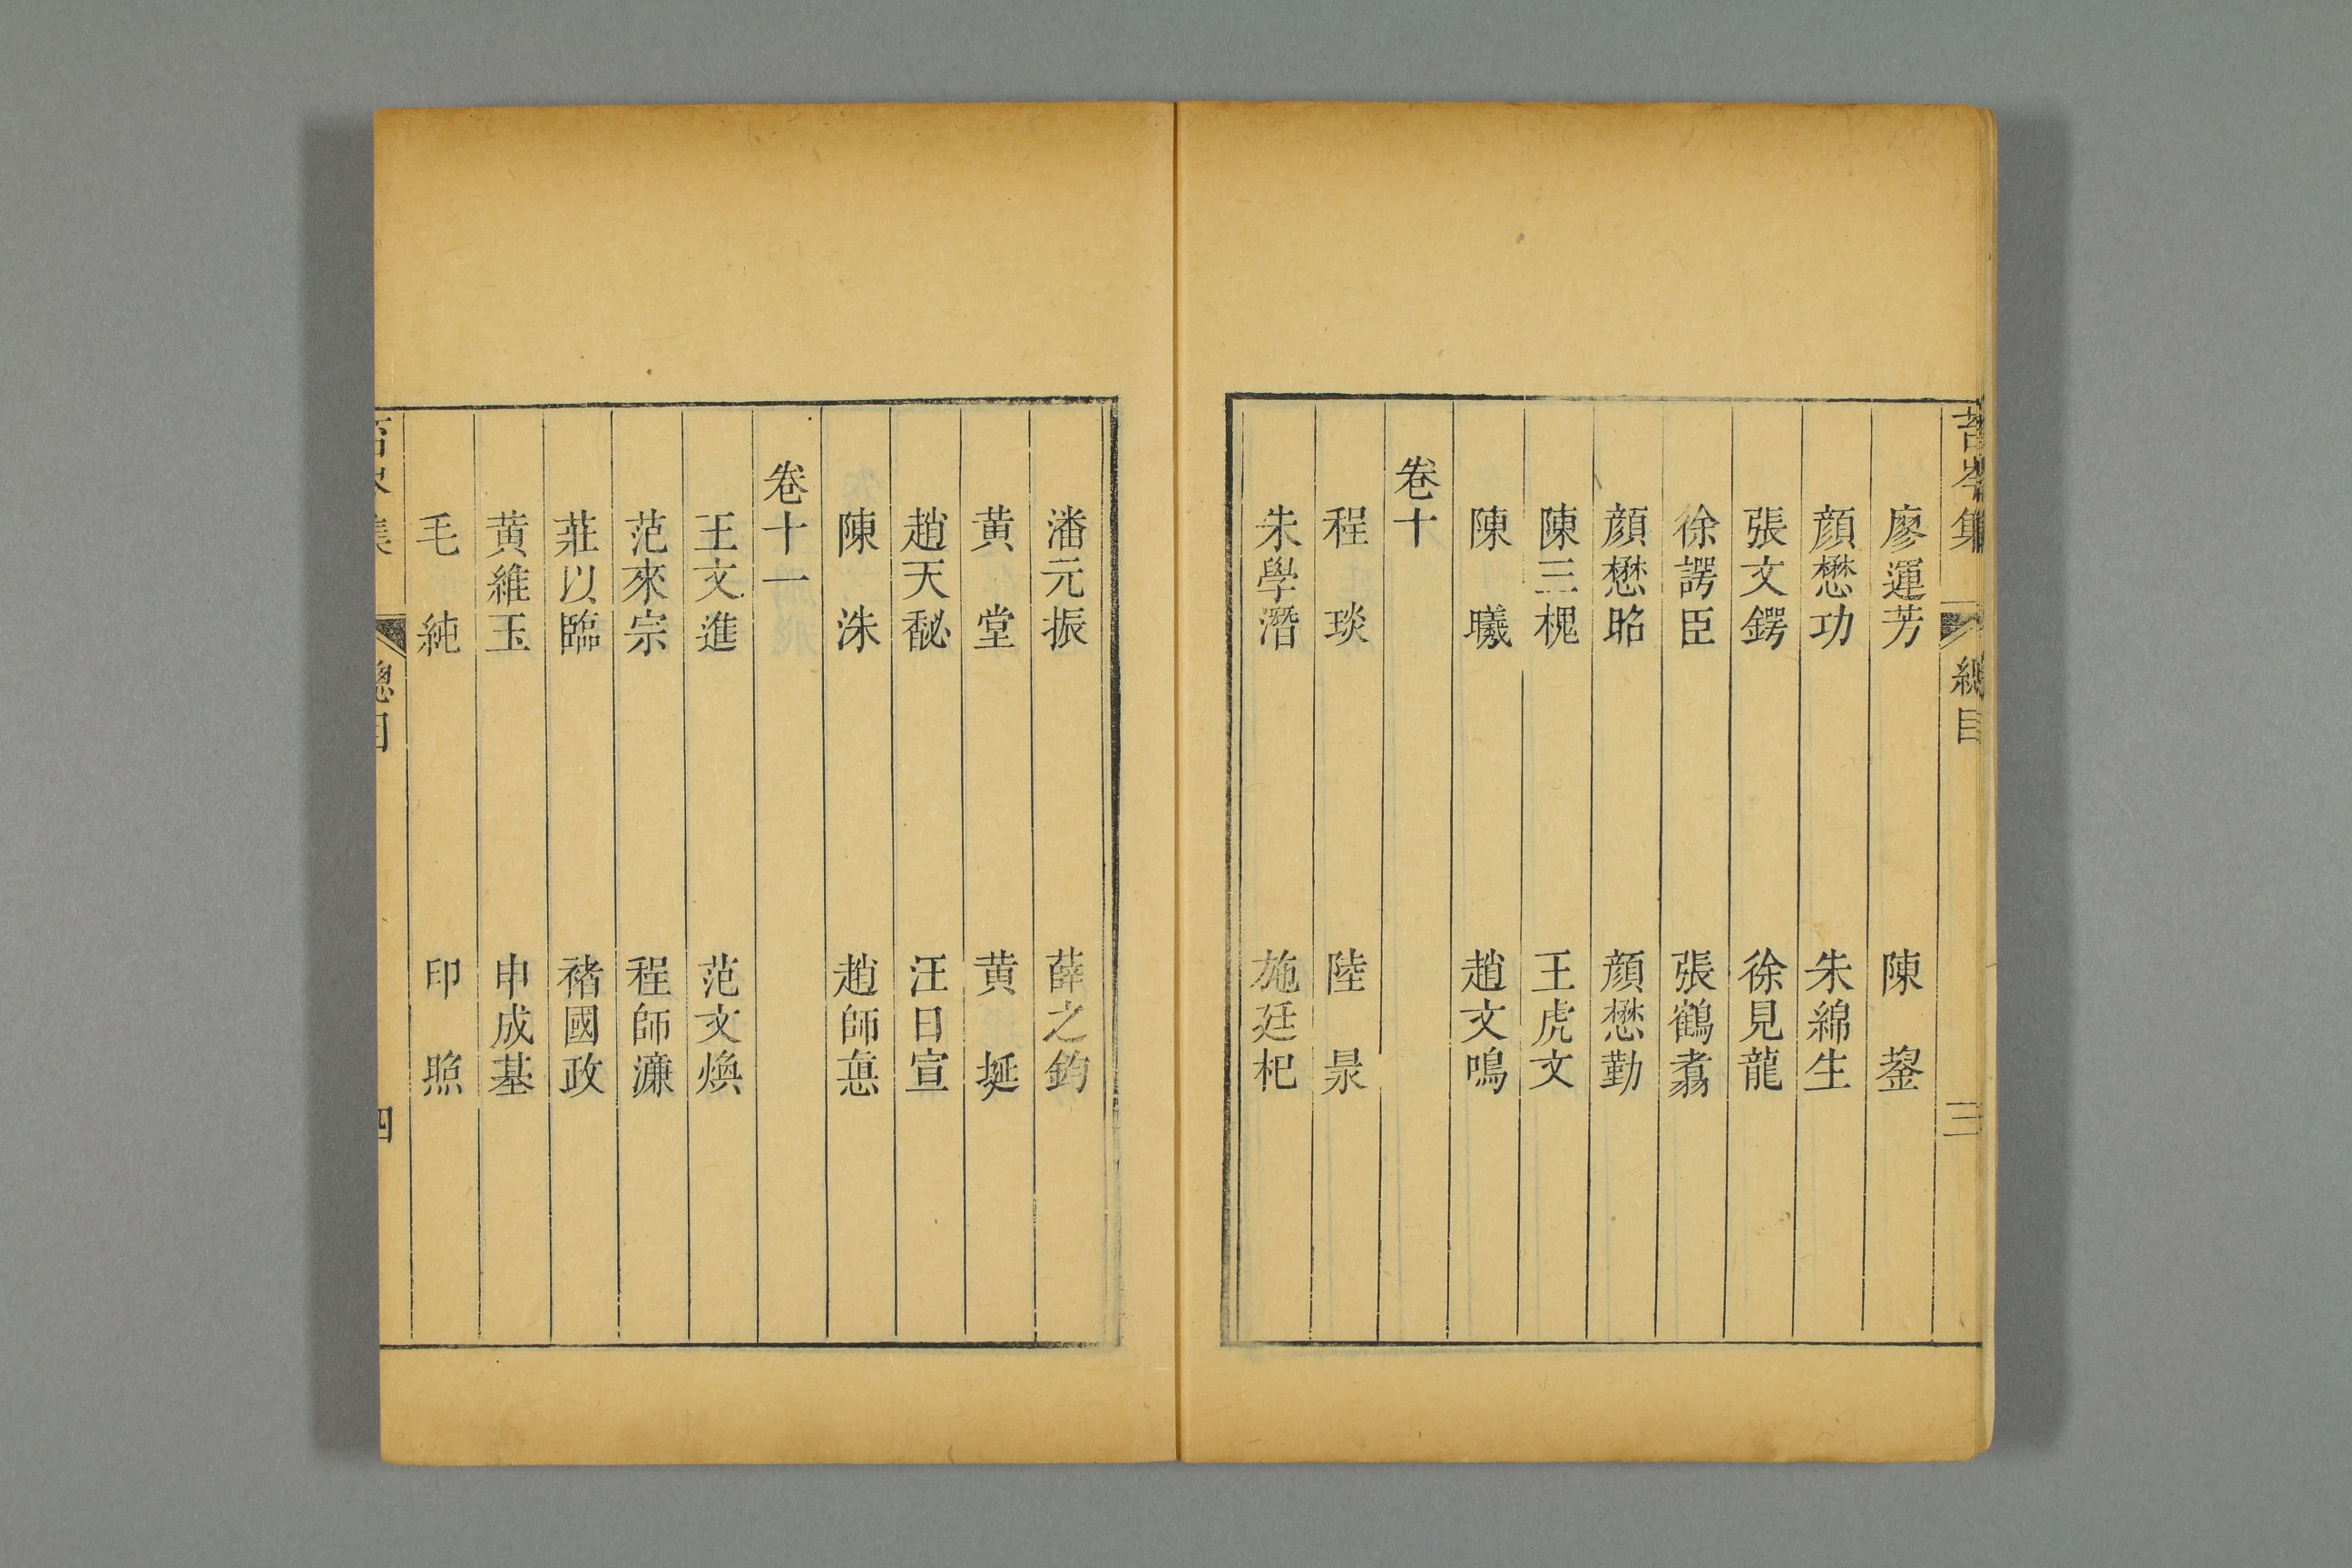 苔岑集 總目 三
廖運芳 陳鋆
顏懋功 朱綿生
張文鍔 徐見龍
徐諤臣 張鶴翥
顏懋昭 顏懋勤
陳三槐 王虎文
陳曦 趙文鳴
卷十
程琰 陸景
朱學潛 施廷杷
潘元振 薛之鈞
黃堂 黃埏
趙天秘 汪日宣
陳洙 趙師惪
卷十一
王文進 范文煥
范來宗 程師濂
莊以臨 褚國政
黃維玉 申成基
毛純 印照
苔岑集 總目 四